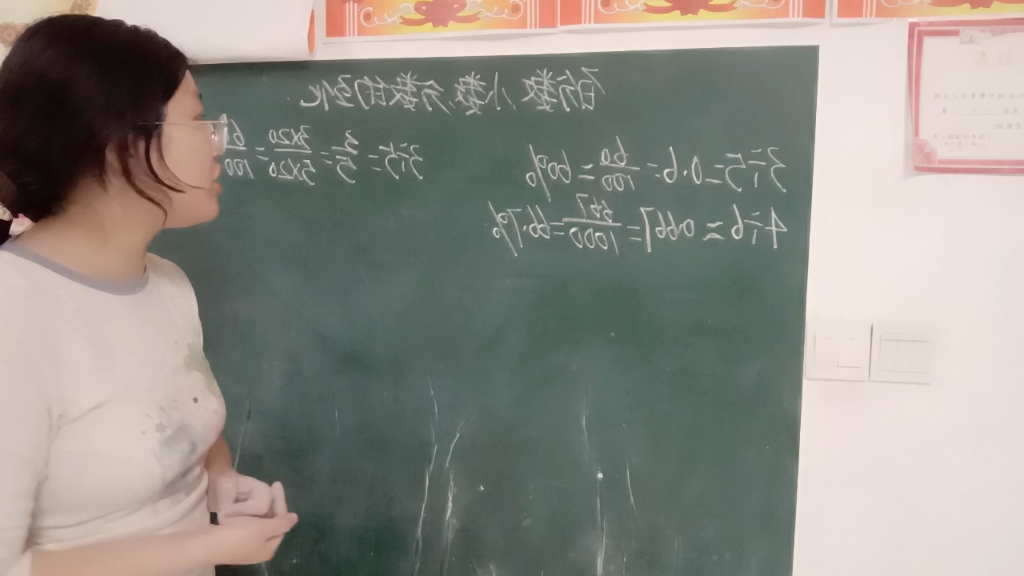 百分数、小数、分数的互化
3÷5=0.6=60/100=60%
4÷6≈0.667=667/1000=66.7%
3÷5=3/5=3×20/5×20=6/100